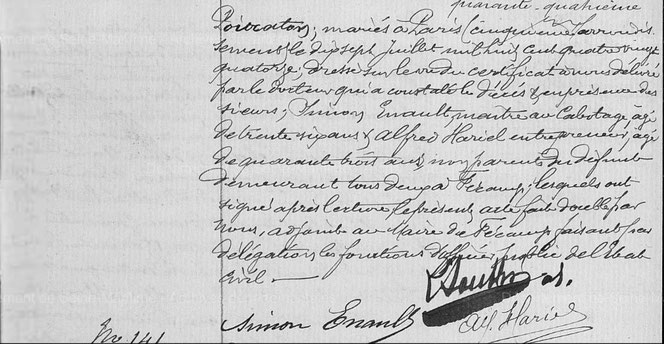 quarante-quatrième
mariés à Paris (cinquième arrondis
sement) le dix sept juillet mil huit cent quatre vingt
quatorze; dressé sur le vu du certificat à nous délivré
par le docteur qui a constaté le décès & en présence des
sieurs; Simon Enault, maître au Cabotage, âgé
de trente six ans & Alfred Hariel entrepreneur, âgé
de quarante trois ans, non parents du défunt
demeurant tous deux à Fécamp; lesquels ont
signé après lecture le présent acte fait double par
Nous, adjoint au Maire de Fécamp faisant par
délégation les fonctions d'officier public de l'Etat
Civil.
Simon Enault
Alf. Hariel
No 141